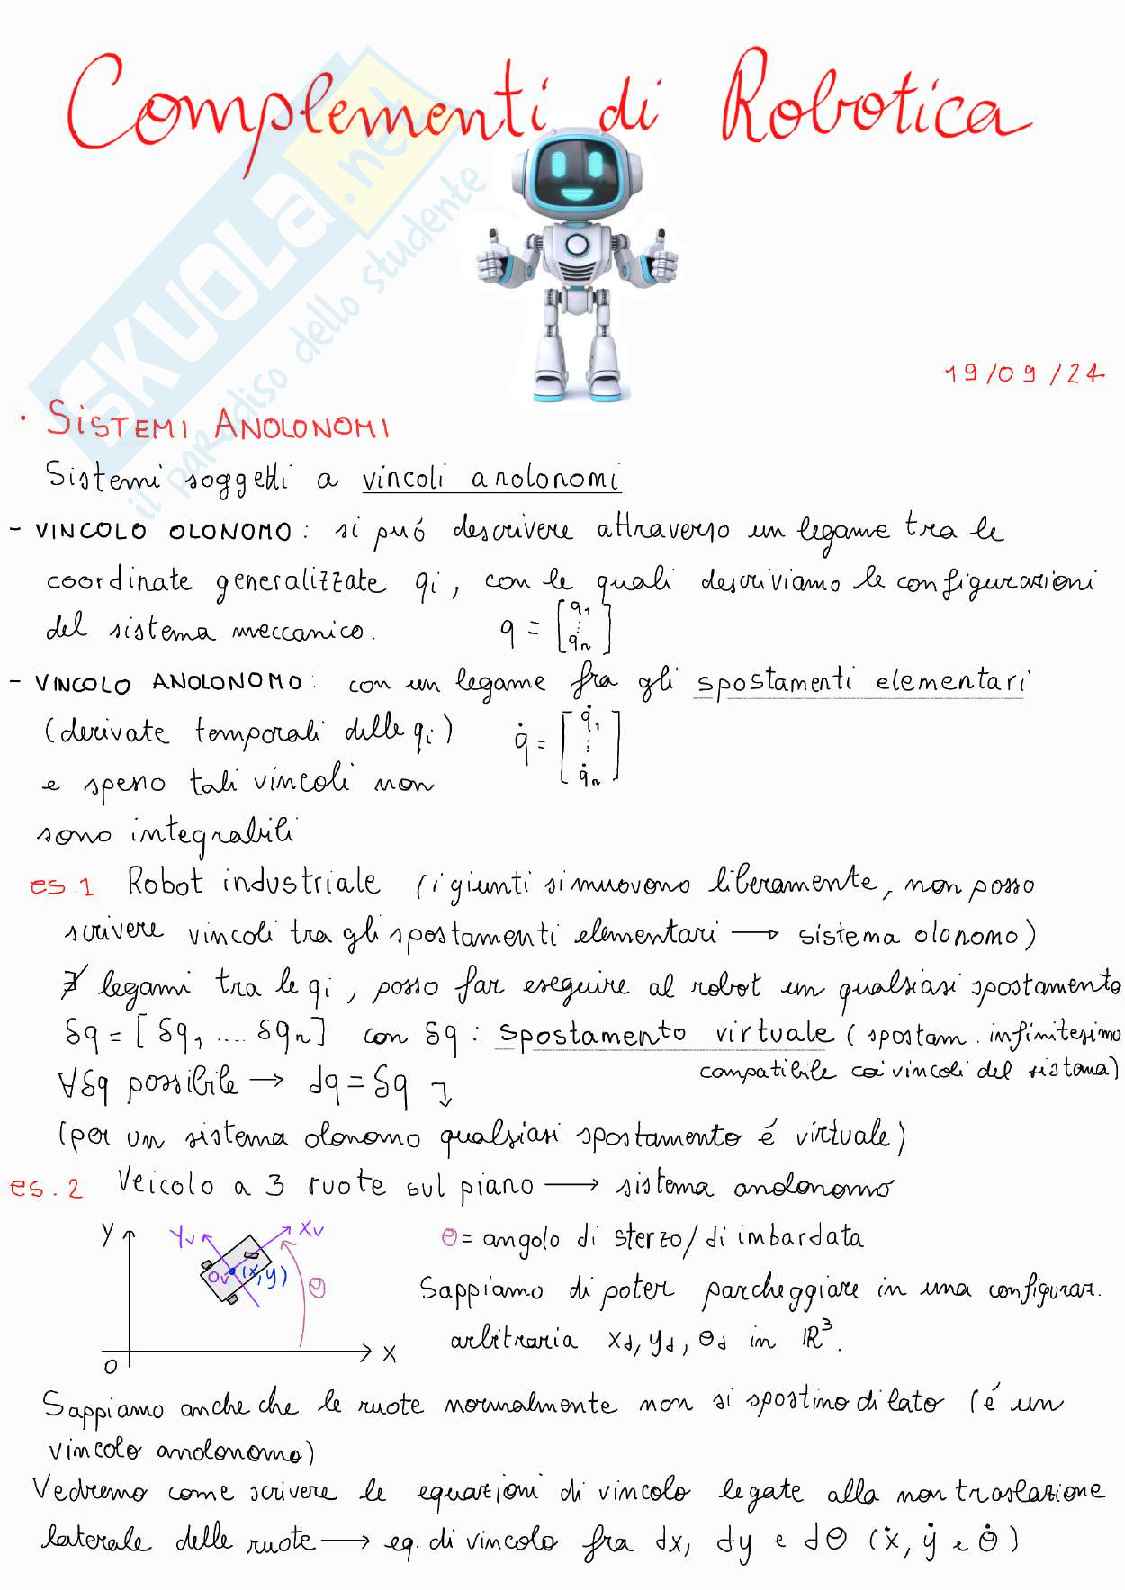 Complementi di Robotica
SKUOLA.net
il paradiso dello studente
19/09/24
· SISTEMI ANOLONOMI
Sistemi soggetti a vincoli anolonomi
- VINCOLO OLONOMO: si puó descrivere attraverso un legame tra le
coordinate generalizzate qi, con le quali descriviamo le configurazioni
del sistema meccanico. q = [q1 ⋮ qn]
- VINCOLO ANOLONOMO: con un legame fra gli spostamenti elementari
(derivate temporali delle qi) q̇ = [q̇1 ⋮ q̇n]
e spesso tali vincoli non
sono integrabili
es.1 Robot industriale (i giunti si muovono liberamente, non posso
scrivere vincoli tra gli spostamenti elementari → sistema olonomo)
∄ legami tra le qi, posso far eseguire al robot un qualsiasi spostamento
δq = [δq1 .... δqn] con δq: spostamento virtuale (spostam. infinitesimo
compatibile coi vincoli del sistema)
∀δq possibile → dq = δq ↴
(per un sistema olonomo qualsiasi spostamento é virtuale)
es.2 Veicolo a 3 ruote sul piano → sistema anolonomo
Y
Yv
Xv
Ov
(x,y)
θ
O
X
θ = angolo di sterzo/di imbardata
Sappiamo di poter parcheggiare in una configuraz.
arbitraria xd, yd, θd in ℝ³.
Sappiamo anche che le ruote normalmente non si spostino di lato (é un
vincolo anolonomo)
Vedremo come scrivere le equazioni di vincolo legate alla non traslazione
laterale delle ruote → eq. di vincolo fra dx, dy e dθ (ẋ, ẏ e θ̇)